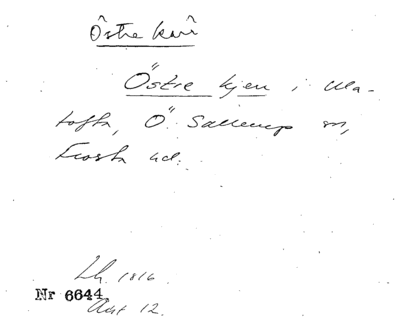 Östre kärr
Östre kjen i Ula-
tofta, Ö. Sallerup sn,
Frosta hd.
Lh. 1816.
Nr 6644
Akt 12.